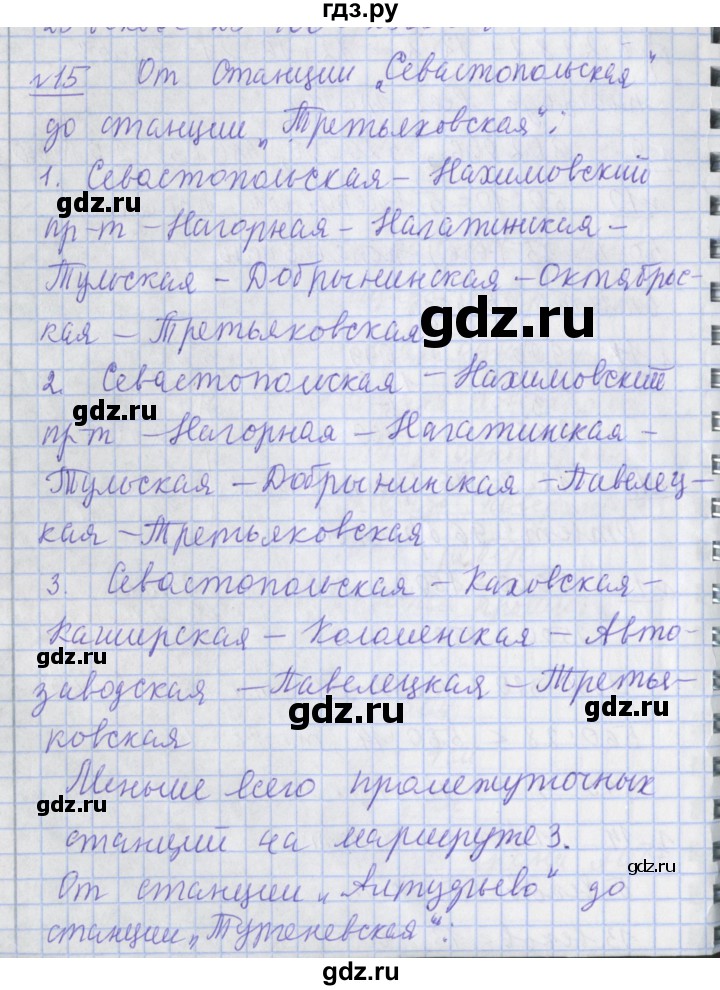 гдз.ру
№15 От станции „Севастопольская"
до станции „Третьяковская":
1. Севастопольская – Нахимовский
gdz.ru
пр-т – Нагорная – Нагатинская –
Тульская – Добрынинская – Октябрьс-
gdz.ru
кая – Третьяковская
2. Севастопольская – Нахимовский
gdz.ru
gdz.ru
пр-т – Нагорная – Нагатинская –
Тульская – Добрынинская – Павелец-
кая – Третьяковская
3. Севастопольская – Каховская –
Каширская – Коломенская – Авто-
gdz.ru
заводская – Павелецкая – Третья-
gdz.ru
gdz.ru
ковская
Меньше всего промежуточных
gdz.ru
станций на маршруте 3.
gdz.ru
От станции „Алтуфьево" до
станции „Тургеневская":
gdz.ru
gdz.ru